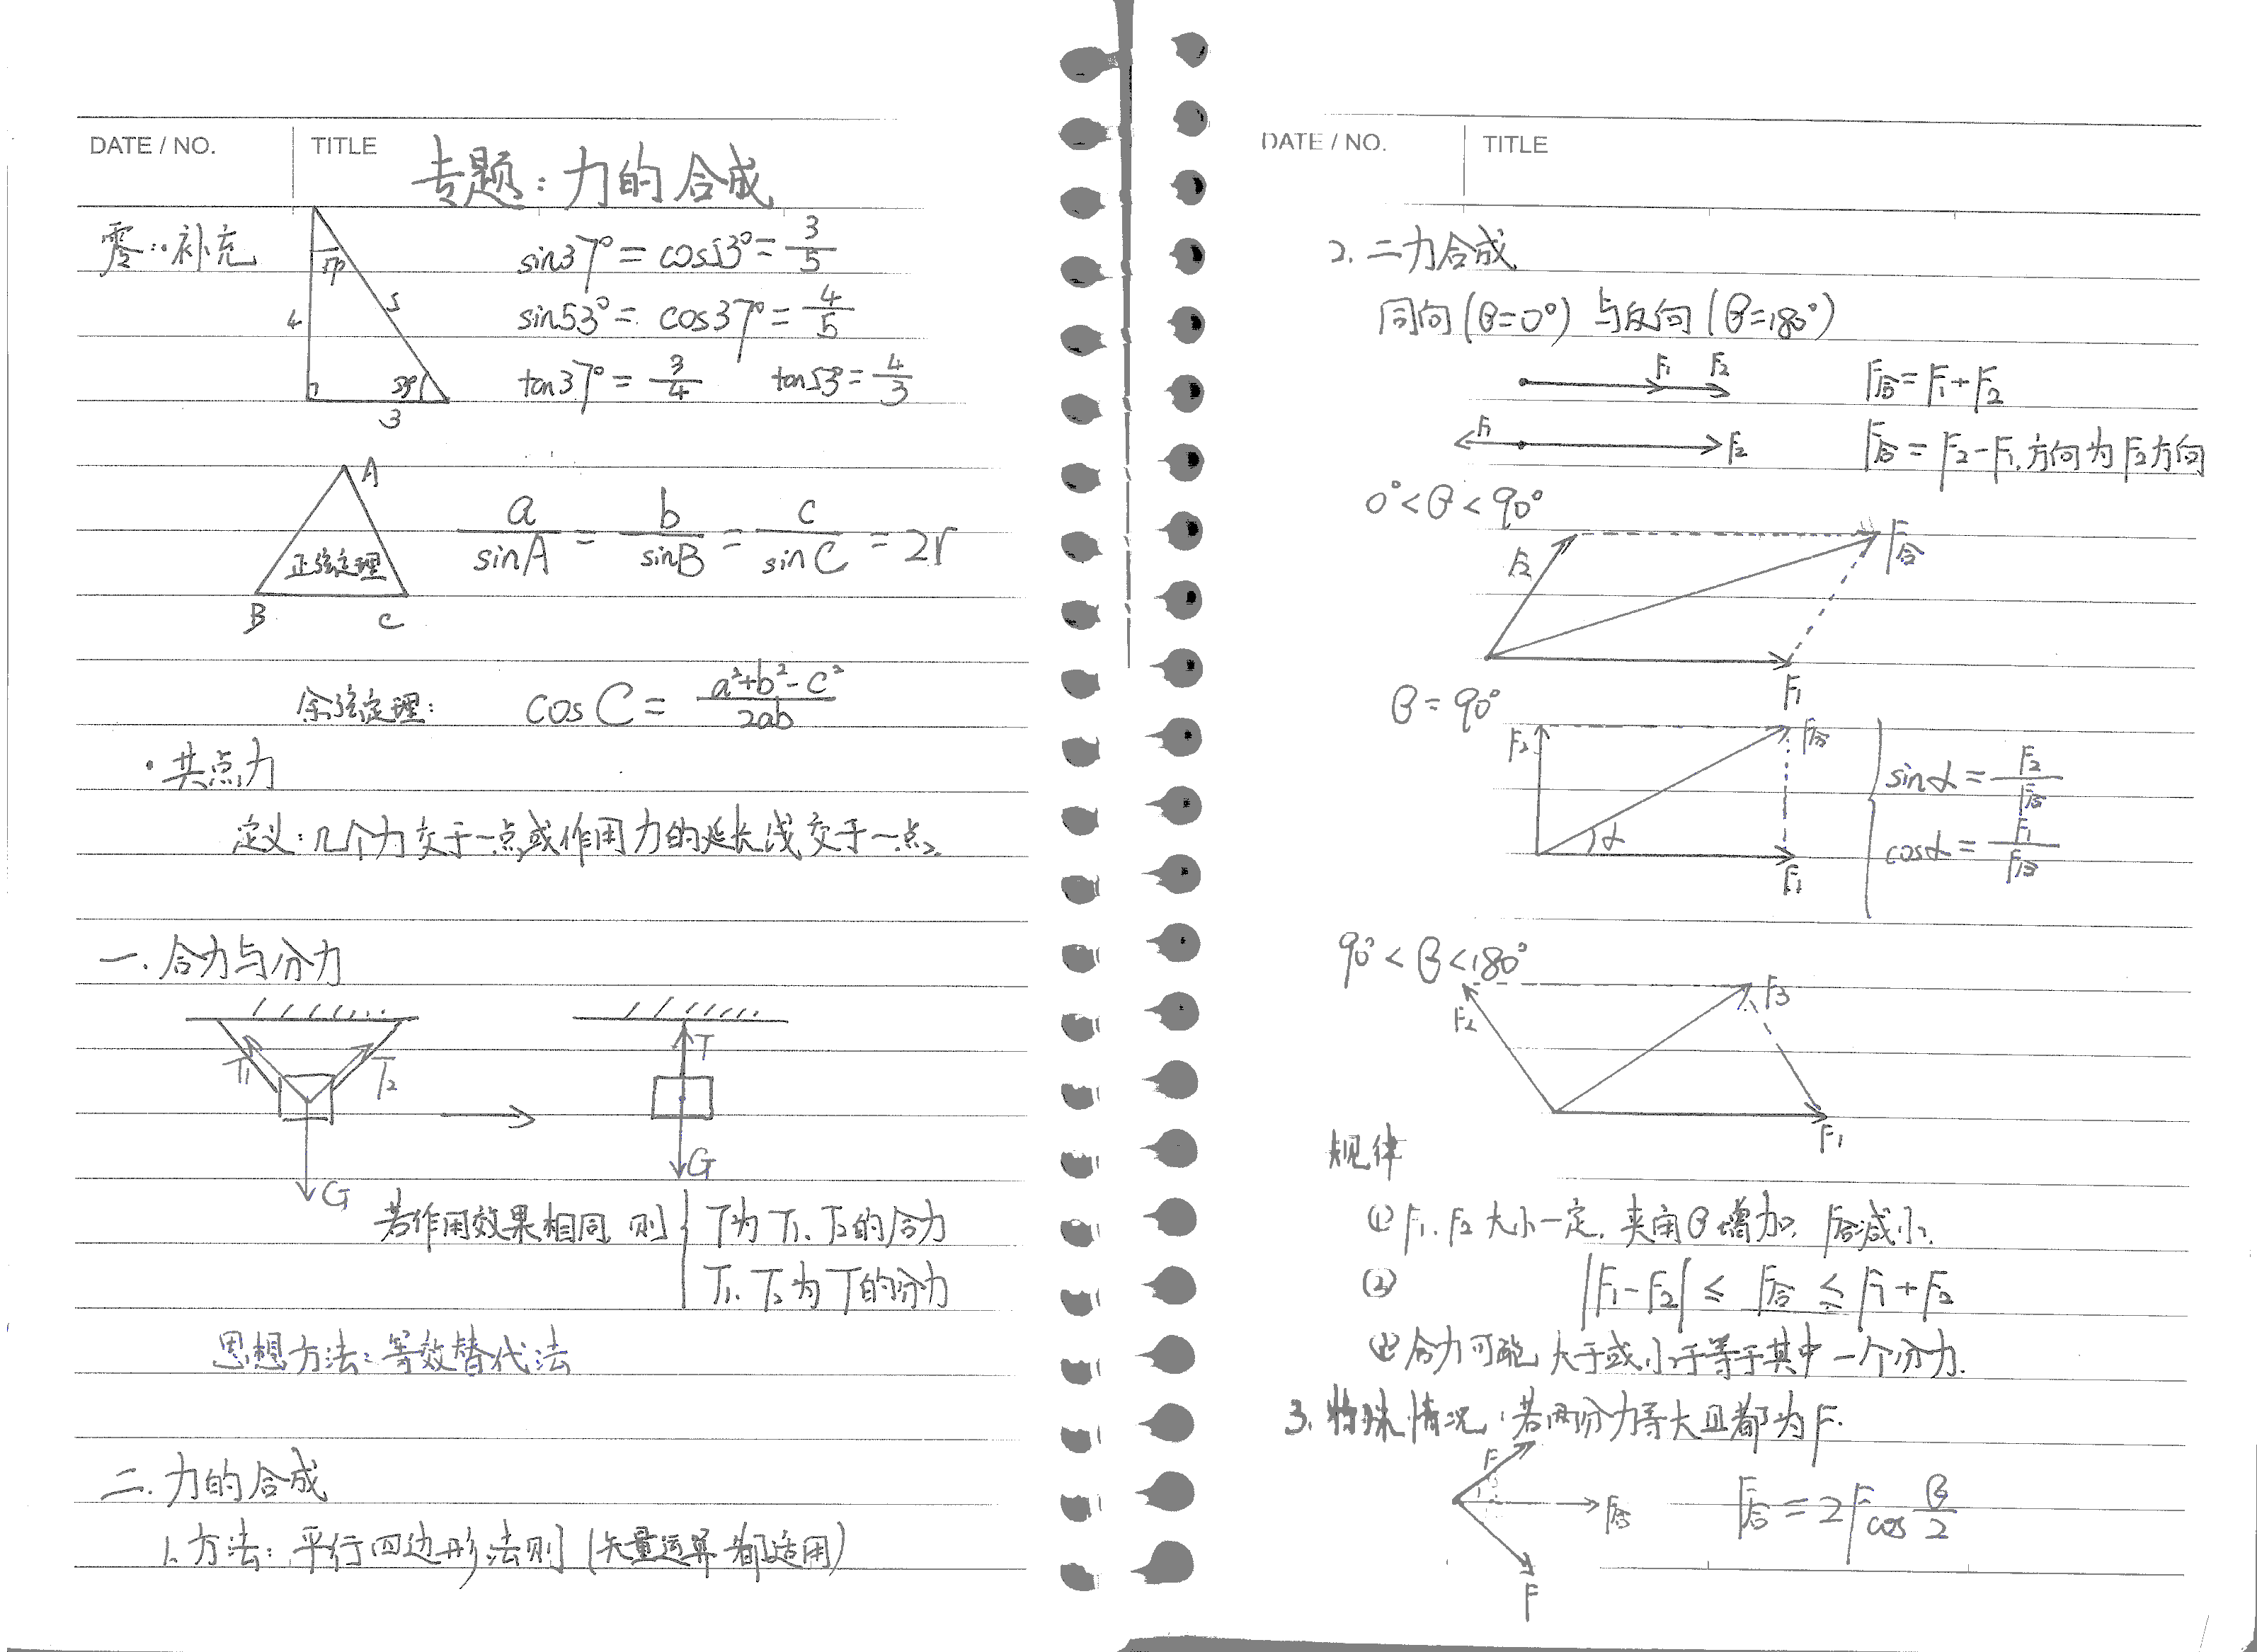 DATE / NO. TITLE
专题：力的合成
零：补充
sin37°=cos53°=3/5
sin53°=cos37°=4/5
tan37°=3/4 tan53°=4/3
4
5
3
A
正弦定理
B C
a/sinA = b/sinB = c/sinC = 2r
余弦定理: cosC = (a²+b²-c²)/2ab
·共点力
定义：几个力交于一点,或作用力的延长线交于一点。
一.合力与分力
T₁ T₂ G
T G
若作用效果相同 则 { T为T₁、T₂的合力
T₁、T₂为T的分力
思想方法：等效替代法
二.力的合成
1.方法：平行四边形法则(矢量运算都适用)
DATE / NO. TITLE
2.二力合成
同向(θ=0°)与反向(θ=180°)
F₁ F₂ F合=F₁+F₂
F₁ F₂ F合=F₂-F₁,方向为F₂方向
0°<θ<90°
F₂ F合
F₁
θ=90°
F₂ F合
α F₁
sinα=F₂/F合
cosα=F₁/F合
90°<θ<180°
F₂ F₃
F₁
规律
(1)F₁、F₂大小一定，夹角θ增加，F合减小、
(2) |F₁-F₂| ≤ F合 ≤ F₁+F₂
合力可能大于或小于等于其中一个分力.
3.特殊情况：若两分力等大且都为F.
F F合 F
F合=2Fcos θ/2